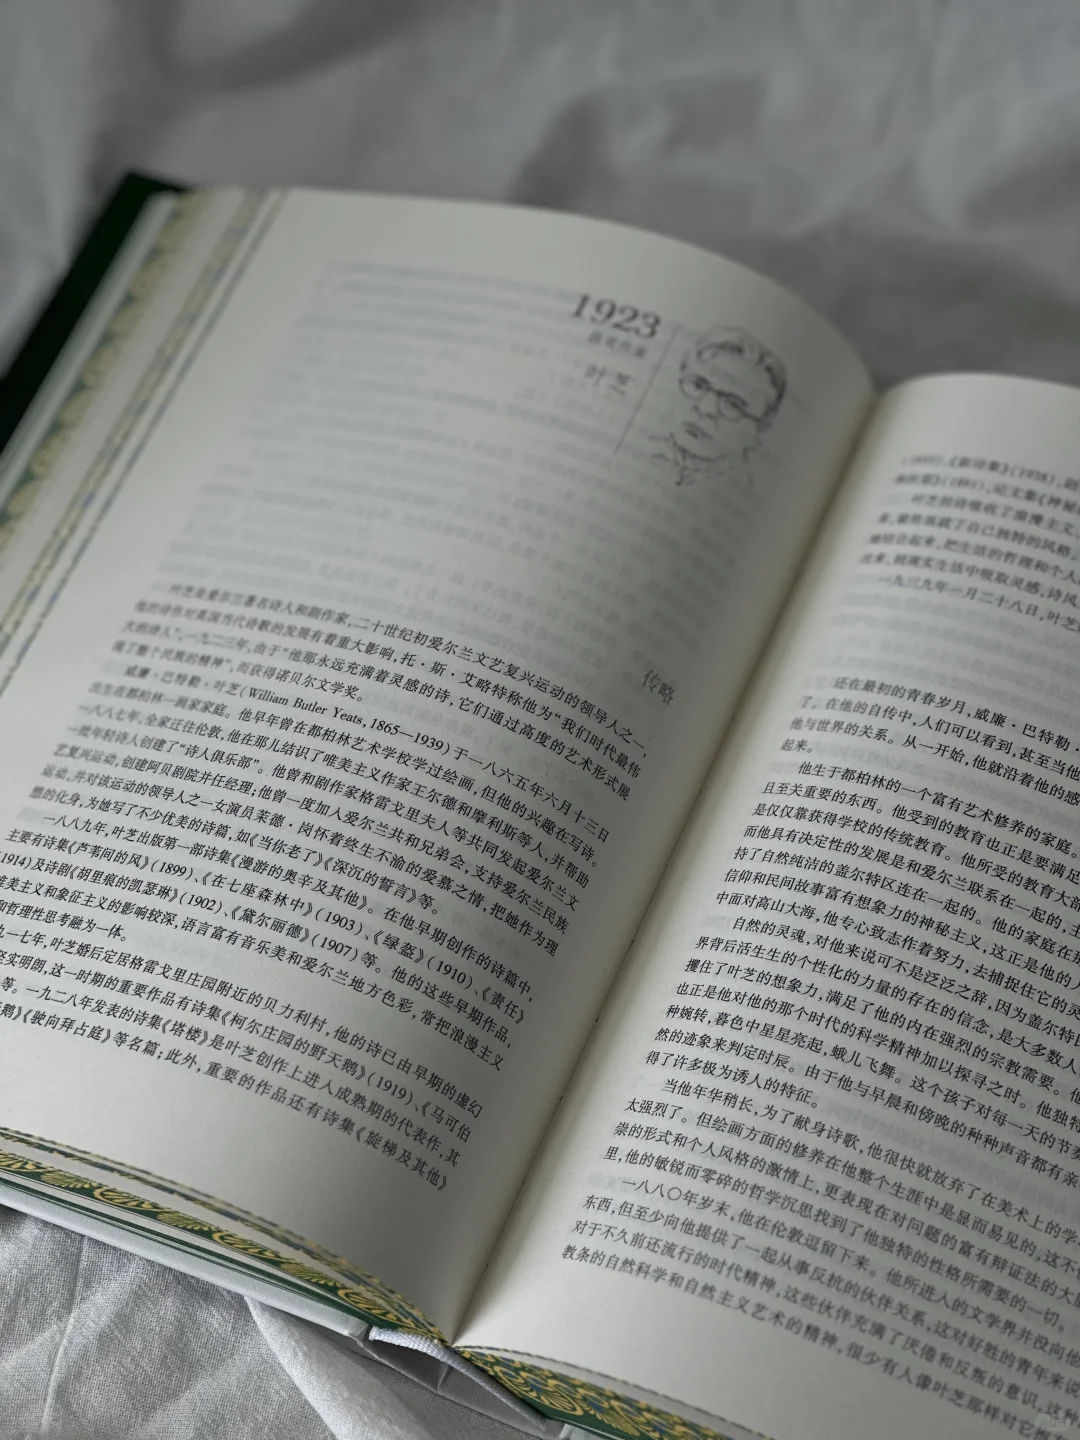 1923
获奖作家
叶芝
传略
叶芝是爱尔兰著名诗人和剧作家,二十世纪初爱尔兰文艺复兴运动的领导人之一,
他的诗作对英国当代诗歌的发展有着重大影响,托·斯·艾略特称他为“我们时代最伟
大的诗人”。一九二三年,由于“他那永远充满着灵感的诗,它们通过高度的艺术形式展
现了整个民族的精神”,而获得诺贝尔文学奖。
威廉·巴特勒·叶芝(William Butler Yeats,1865—1939)于一八六五年六月十三日
出生在都柏林一画家家庭。他早年曾在都柏林艺术学校学过绘画,但他的兴趣在写诗。
一八八七年,全家迁往伦敦,他在那儿结识了唯美主义作家王尔德和摩利斯等人,并帮助
一批年轻诗人创建了“诗人俱乐部”。他曾和剧作家格雷戈里夫人等共同发起爱尔兰文
艺复兴运动,创建阿贝剧院并任经理;他曾一度加入爱尔兰共和兄弟会,支持爱尔兰民族
运动,并对该运动的领导人之一女演员茉德·岗怀着终生不渝的爱慕之情,把她作为理
想的化身,为她写了不少优美的诗篇,如《当你老了》《深沉的誓言》等。
一八八九年,叶芝出版第一部诗集《漫游的奥辛及其他》。在他早期创作的诗篇中,
主要有诗集《芦苇间的风》(1899)、《在七座森林中》(1903)、《绿盔》(1910)、《责任》
(1914)及诗剧《胡里痕的凯瑟琳》(1902)、《黛尔丽德》(1907)等。他的这些早期作品,
唯美主义和象征主义的影响较深,语言富有音乐美和爱尔兰地方色彩,常把浪漫主义
和哲理性思考融为一体。
九一七年,叶芝婚后定居格雷戈里庄园附近的贝力利村,他的诗已由早期的虚幻
坚实明朗,这一时期的重要作品有诗集《柯尔庄园的野天鹅》(1919)、《马可伯
等。一九二八年发表的诗集《塔楼》是叶芝创作上进入成熟期的代表作,其
鹅》《驶向拜占庭》等名篇;此外,重要的作品还有诗集《旋梯及其他》
《新诗集》(1938),
(1891),论文集《神秘
叶芝的诗吸收了浪漫主义、
最终形成了自己独特的风格,
地结合起来,把生活的哲理和个人
出来,班现实生活中吸取灵感,诗风
一九三九年一月二十八日,叶芝
还在最初的青春岁月,威廉·巴特勒·
了。在他的自传中,人们可以看到,甚至当他
他与世界的关系。从一开始,他就沿着他的感
起来。
他生于都柏林的一个富有艺术修养的家庭。
且至关重要的东西。他受到的教育也正是要满足
是仅仅靠获得学校的传统教育。他所受的教育大部
而他具有决定性的发展是和爱尔兰联系在一起的,主
持了自然纯洁的盖尔特区连在一起的。他的家庭在那
信仰和民间故事富有想象力的神秘主义,这正是他的人
中面对高山大海,他专心致志作着努力,去捕捉住它的灵
自然的灵魂,对他来说可不是泛泛之辞,因为盖尔特民
界背后活生生的个性化的力量的存在的信念,是大多数人
攫住了叶芝的想象力,满足了他的内在强烈的宗教需要。他
也正是他对他的那个时代的科学精神加以探寻之时。他独特
种婉转,暮色中星星亮起,蛾儿飞舞。这个孩子对每一天的节奏
然的迹象来判定时辰。由于他与早晨和傍晚的种种声音都有亲
得了许多极为诱人的特征。
当他年华稍长,为了献身诗歌,他很快就放弃了在美术上的学
太强烈了。但绘画方面的修养在他整个生涯中是显而易见的,这不
崇的形式和个人风格的激情上,更表现在对问题的富有辩证法的大胆
里,他的敏锐而零碎的哲学沉思找到了他独特的性格所需要的一切。
一八八〇年岁末,他在伦敦逗留下来。他所进入的文学界并没向他
东西,但至少向他提供了一起从事反抗的伙伴关系,这对好胜的青年来说
对于不久前还流行的时代精神,这些伙伴充满了厌倦和反叛的意识,这种
教条的自然科学和自然主义艺术的精神,很少有人像叶芝那样对它抱有